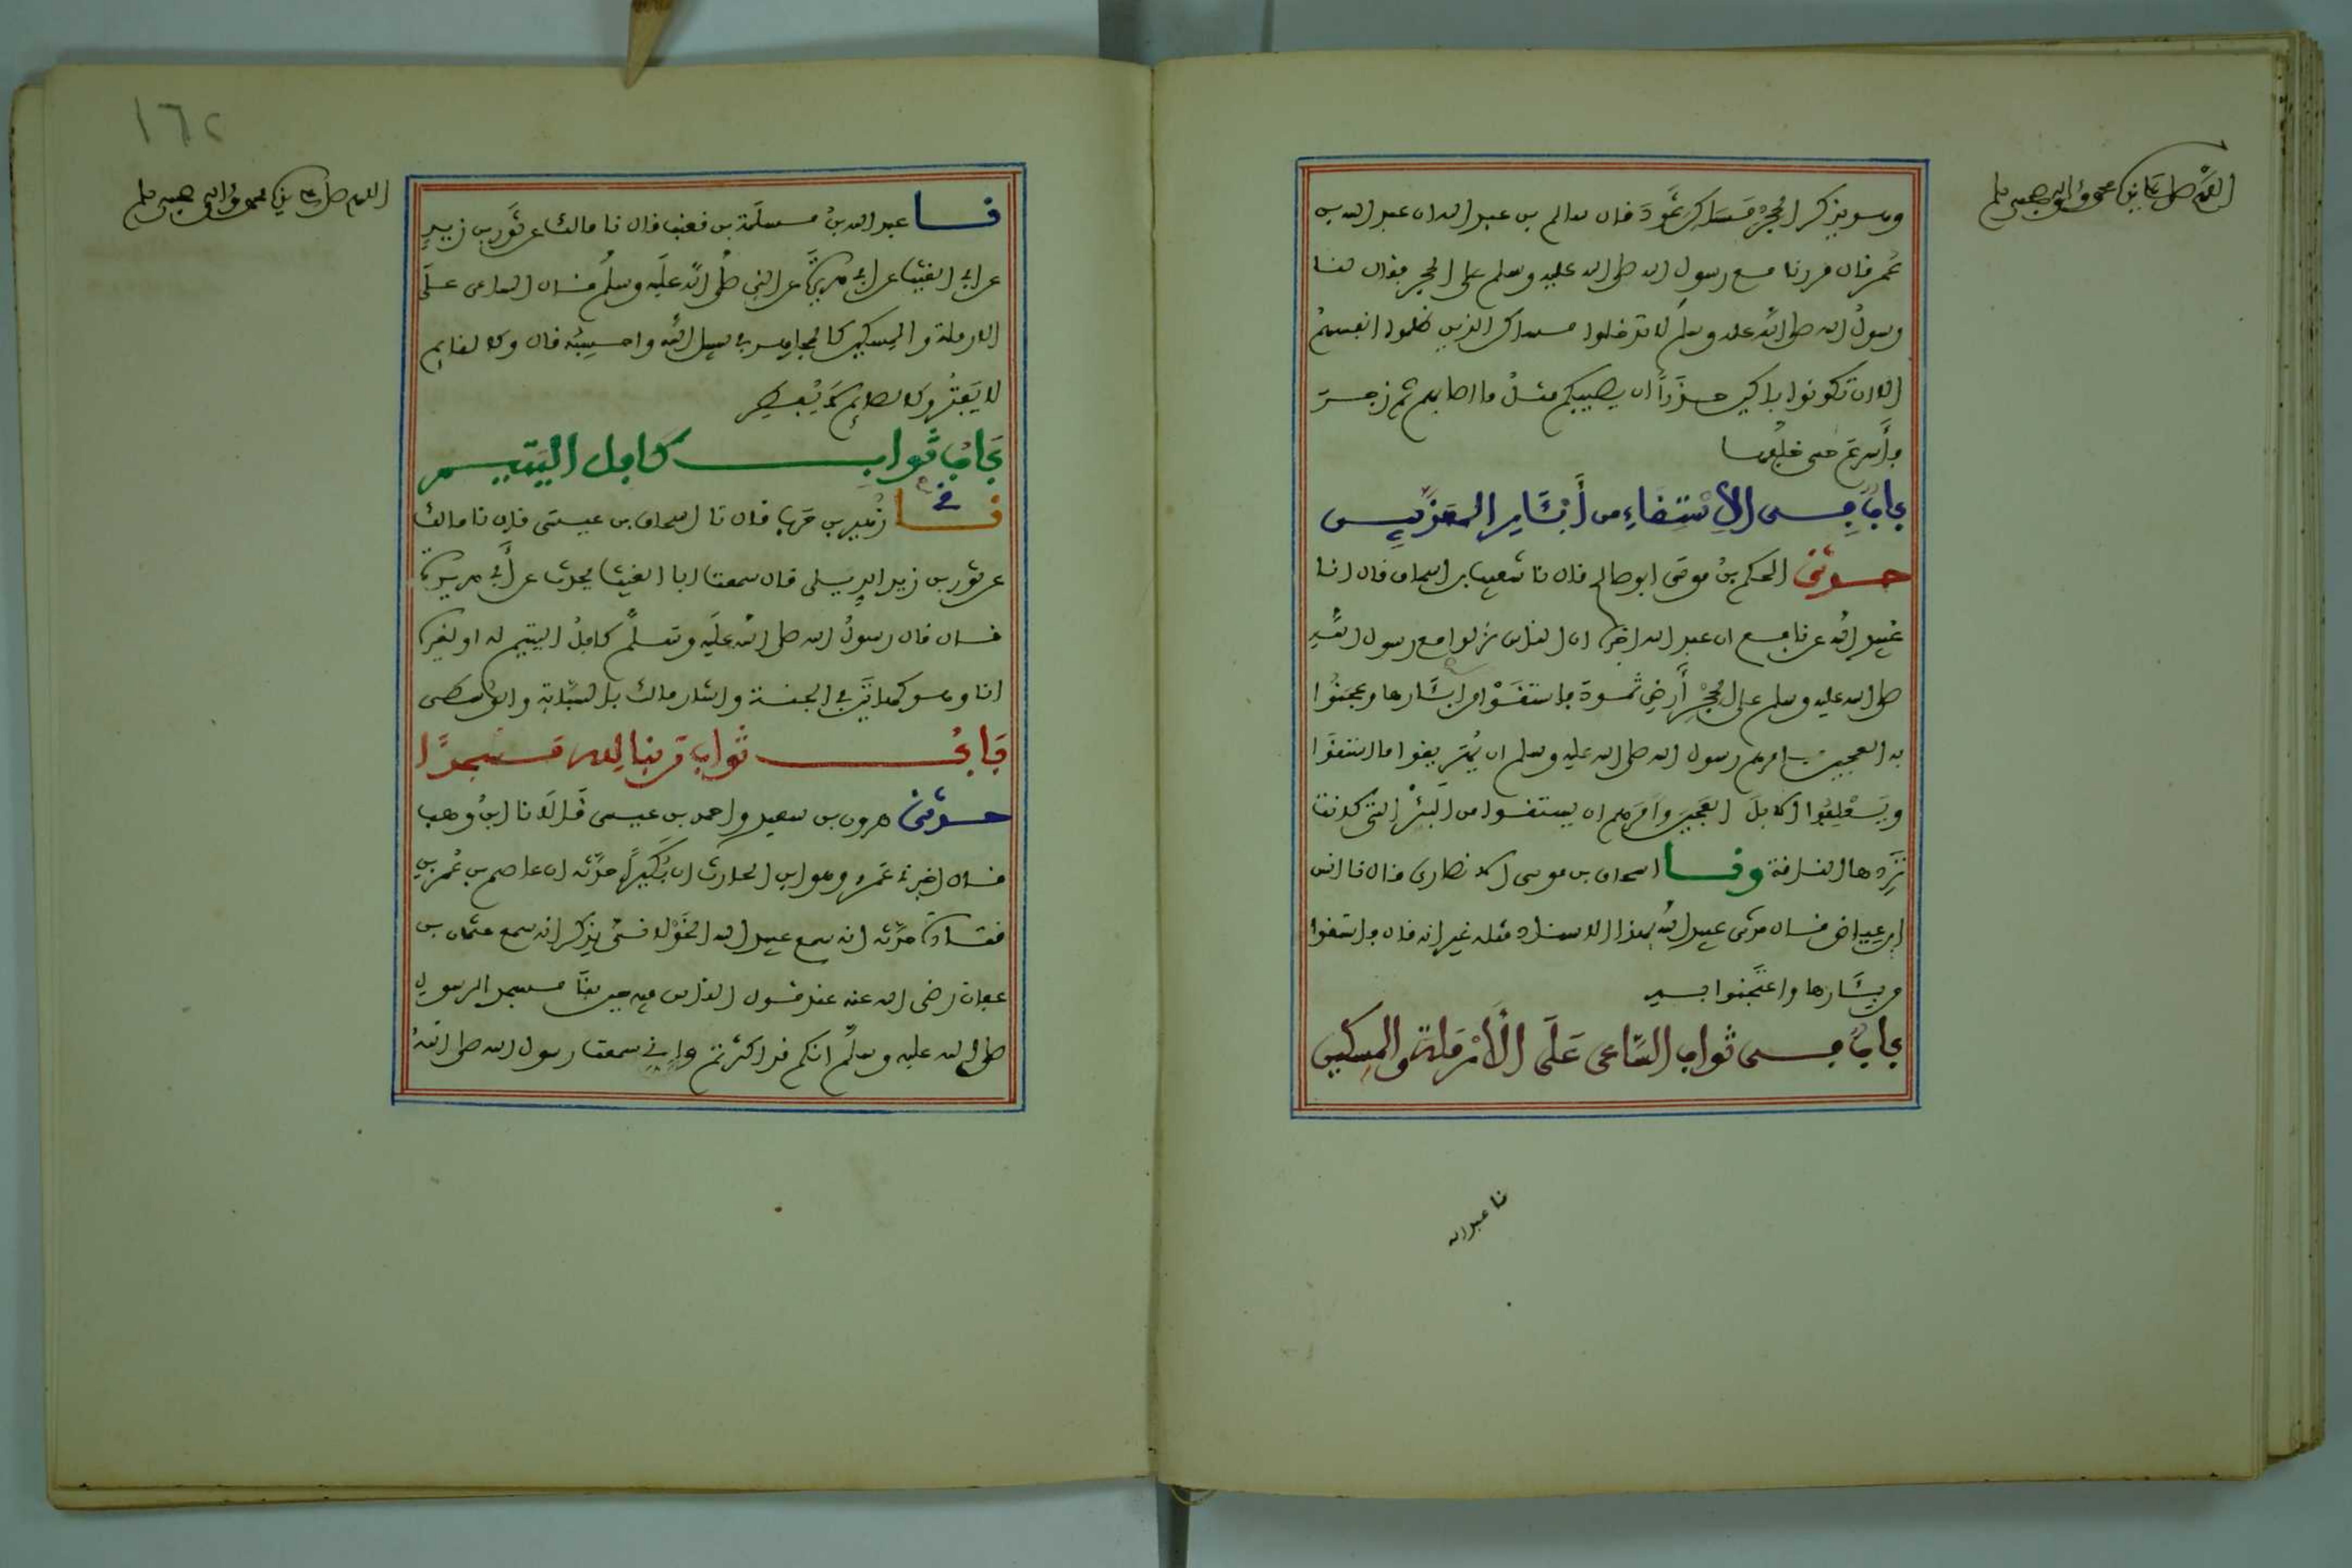 اللهم صل على نبيك محمد وآله وصحبه وسلم
وهو يذكر الحِجْر مَسَاكِن ثَمُودَ قال سالم بن عبد الله ان عبد الله بن
عُمر قال مررنا مع رسول الله صلى الله عليه وسلم على الحجر فقال لنا
رسولُ الله صلى اللهُ عليه وسلم لا تدخلوا مساكن الذين ظلموا انفسهمُ
الا ان تكونوا باكين حذَراً ان يصيبكم مثلُ ما اصابهم ثم زجر
فأَسرعَ حتى خلّفها
بابٌ في الاِسْتِقَاءِ من أَبْئَارِ المعذَّبين
حدثنى الحكم بنُ موسَى ابو صالح قال نا شعيب بن اسحاق قال انا
عُبيد اللهِ عن نافع ان عبد الله اخبره ان الناس نزلوا مع رسول اللهِ
صلى الله عليه وسلم على الحِجْرِ أَرضِ ثمود فاستقَوْا من ابئَارها وعجنُوا
به العجين فامرهم رسول الله صلى الله عليه وسلم ان يُهَريقوا ما استقَوا
ويَعْلِفُوا الابلَ العَجينَ وأَمَرَهم ان يستقوا من البئْر التى كانت
تَرِدها الناقة ونا اسحاق بن موسى الانصارى قال نا انس
ابن عياض قال حدثنى عبيد اللهُ بهذا الاسناد مثله غير انه قال فاستقوا
من بِئَارها واعتَجنوا به
بابٌ فى ثواب السَّاعى عَلَى الأَرْمَلة والمِسكين
نا عبد الله
١٦٢
اللهم صل على نبيك محمد وآله وصحبه وسلم
نا عبد الله بنُ مسلَمة بن قعنب قال نا مالك عن ثَوْر بن زيدٍ
عن ابى الغيث عن ابى هريرةَ عن النبى صلى اللهُ عليه وسلم قال الساعى علَى
الارملة والمِسكين كالمجاهد فى سبيل اللهِ واحسِبُه قال وكالقايم
لا يَفتُر وكالصايم لا يُفطِر
بَابُ ثواب كافل اليَتيم
نى زُهير بن حرب قال نا اسحاق بن عيسَى قال نا مالك
عن ثور بن زيد الدِيلى قال سمعت ابا الغيث يحدث عن أَبى هريرة
قال قال رسولُ الله صلى اللهُ علَيه وسلم كافلُ اليتيم له او لغيره
انا وهو كهاتيَن فى الجنة واشار مالك بالسبَّابة والوسطى
بَابُ ثواب من بنا لله مسجدًا
حدثنى هرون بن سعيد واحمد بن عيسى قَالاَ نا ابنُ وهب
قال اخبرنى عَمرٌو وهو ابن الحارث ان بُكَيراً حدَّثه ان عاصم بن عُمر بن
قتادةَ حدَّثه انه سمع عبيد الله الخَوْلانىَّ يذكر انه سمع عثمان بن
عفان رضى الله عنه عند قول الناس فيه حين بنَا مسجد الرسول
صلى الله عليه وسلم انكم قد اكثرتم وإنى سمعت رسول الله صلى اللهُ